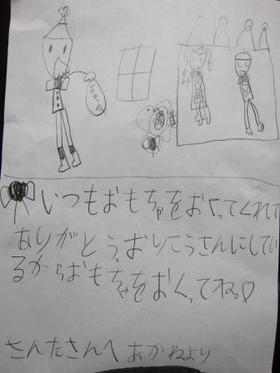 いつもおもちゃをおくってくれて
ありがとう。おりこうさんにしてい
るからおもちゃをおくってね。♡
さんたさんへ あかねより